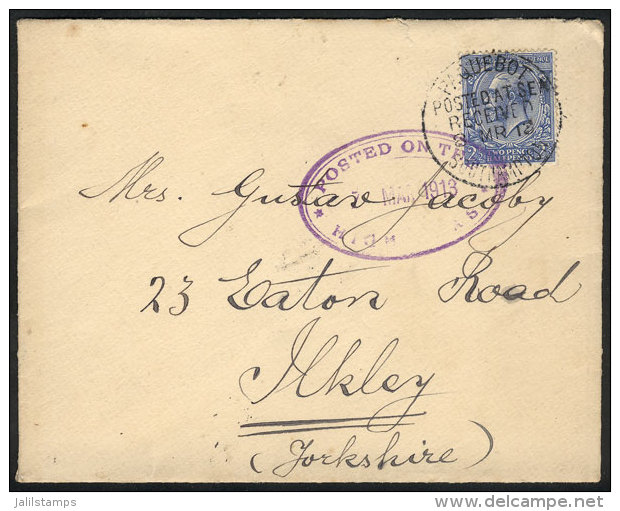 PAQUEBOT
POSTED AT SEA
RECEIVED
MR 12
TWO PENCE
HALFPENNY
POSTED ON THE
MAR 1913
HIGH SEAS
Mrs. Gustav Jacoby
23 Eaton Road
Ilkley
(Yorkshire)
jalilstamps
www.delcampe.net